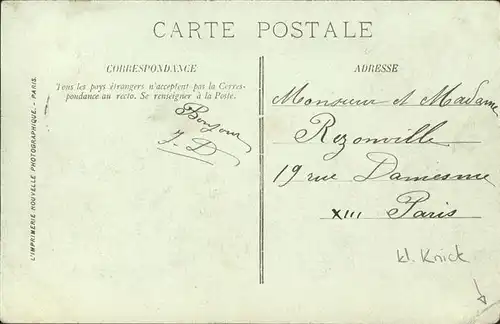 CARTE POSTALE
CORRESPONDANCE
Tous les pays étrangers n'acceptent pas la Corres-
pondance au recto. Se renseigner à la Poste.
Bonjour
J. D
L'IMPRIMERIE NOUVELLE PHOTOGRAPHIQUE. - PARIS.
ADRESSE
Monsieur et Madame
Rezonville
19 rue Damesme
XIII Paris
kl. Knick